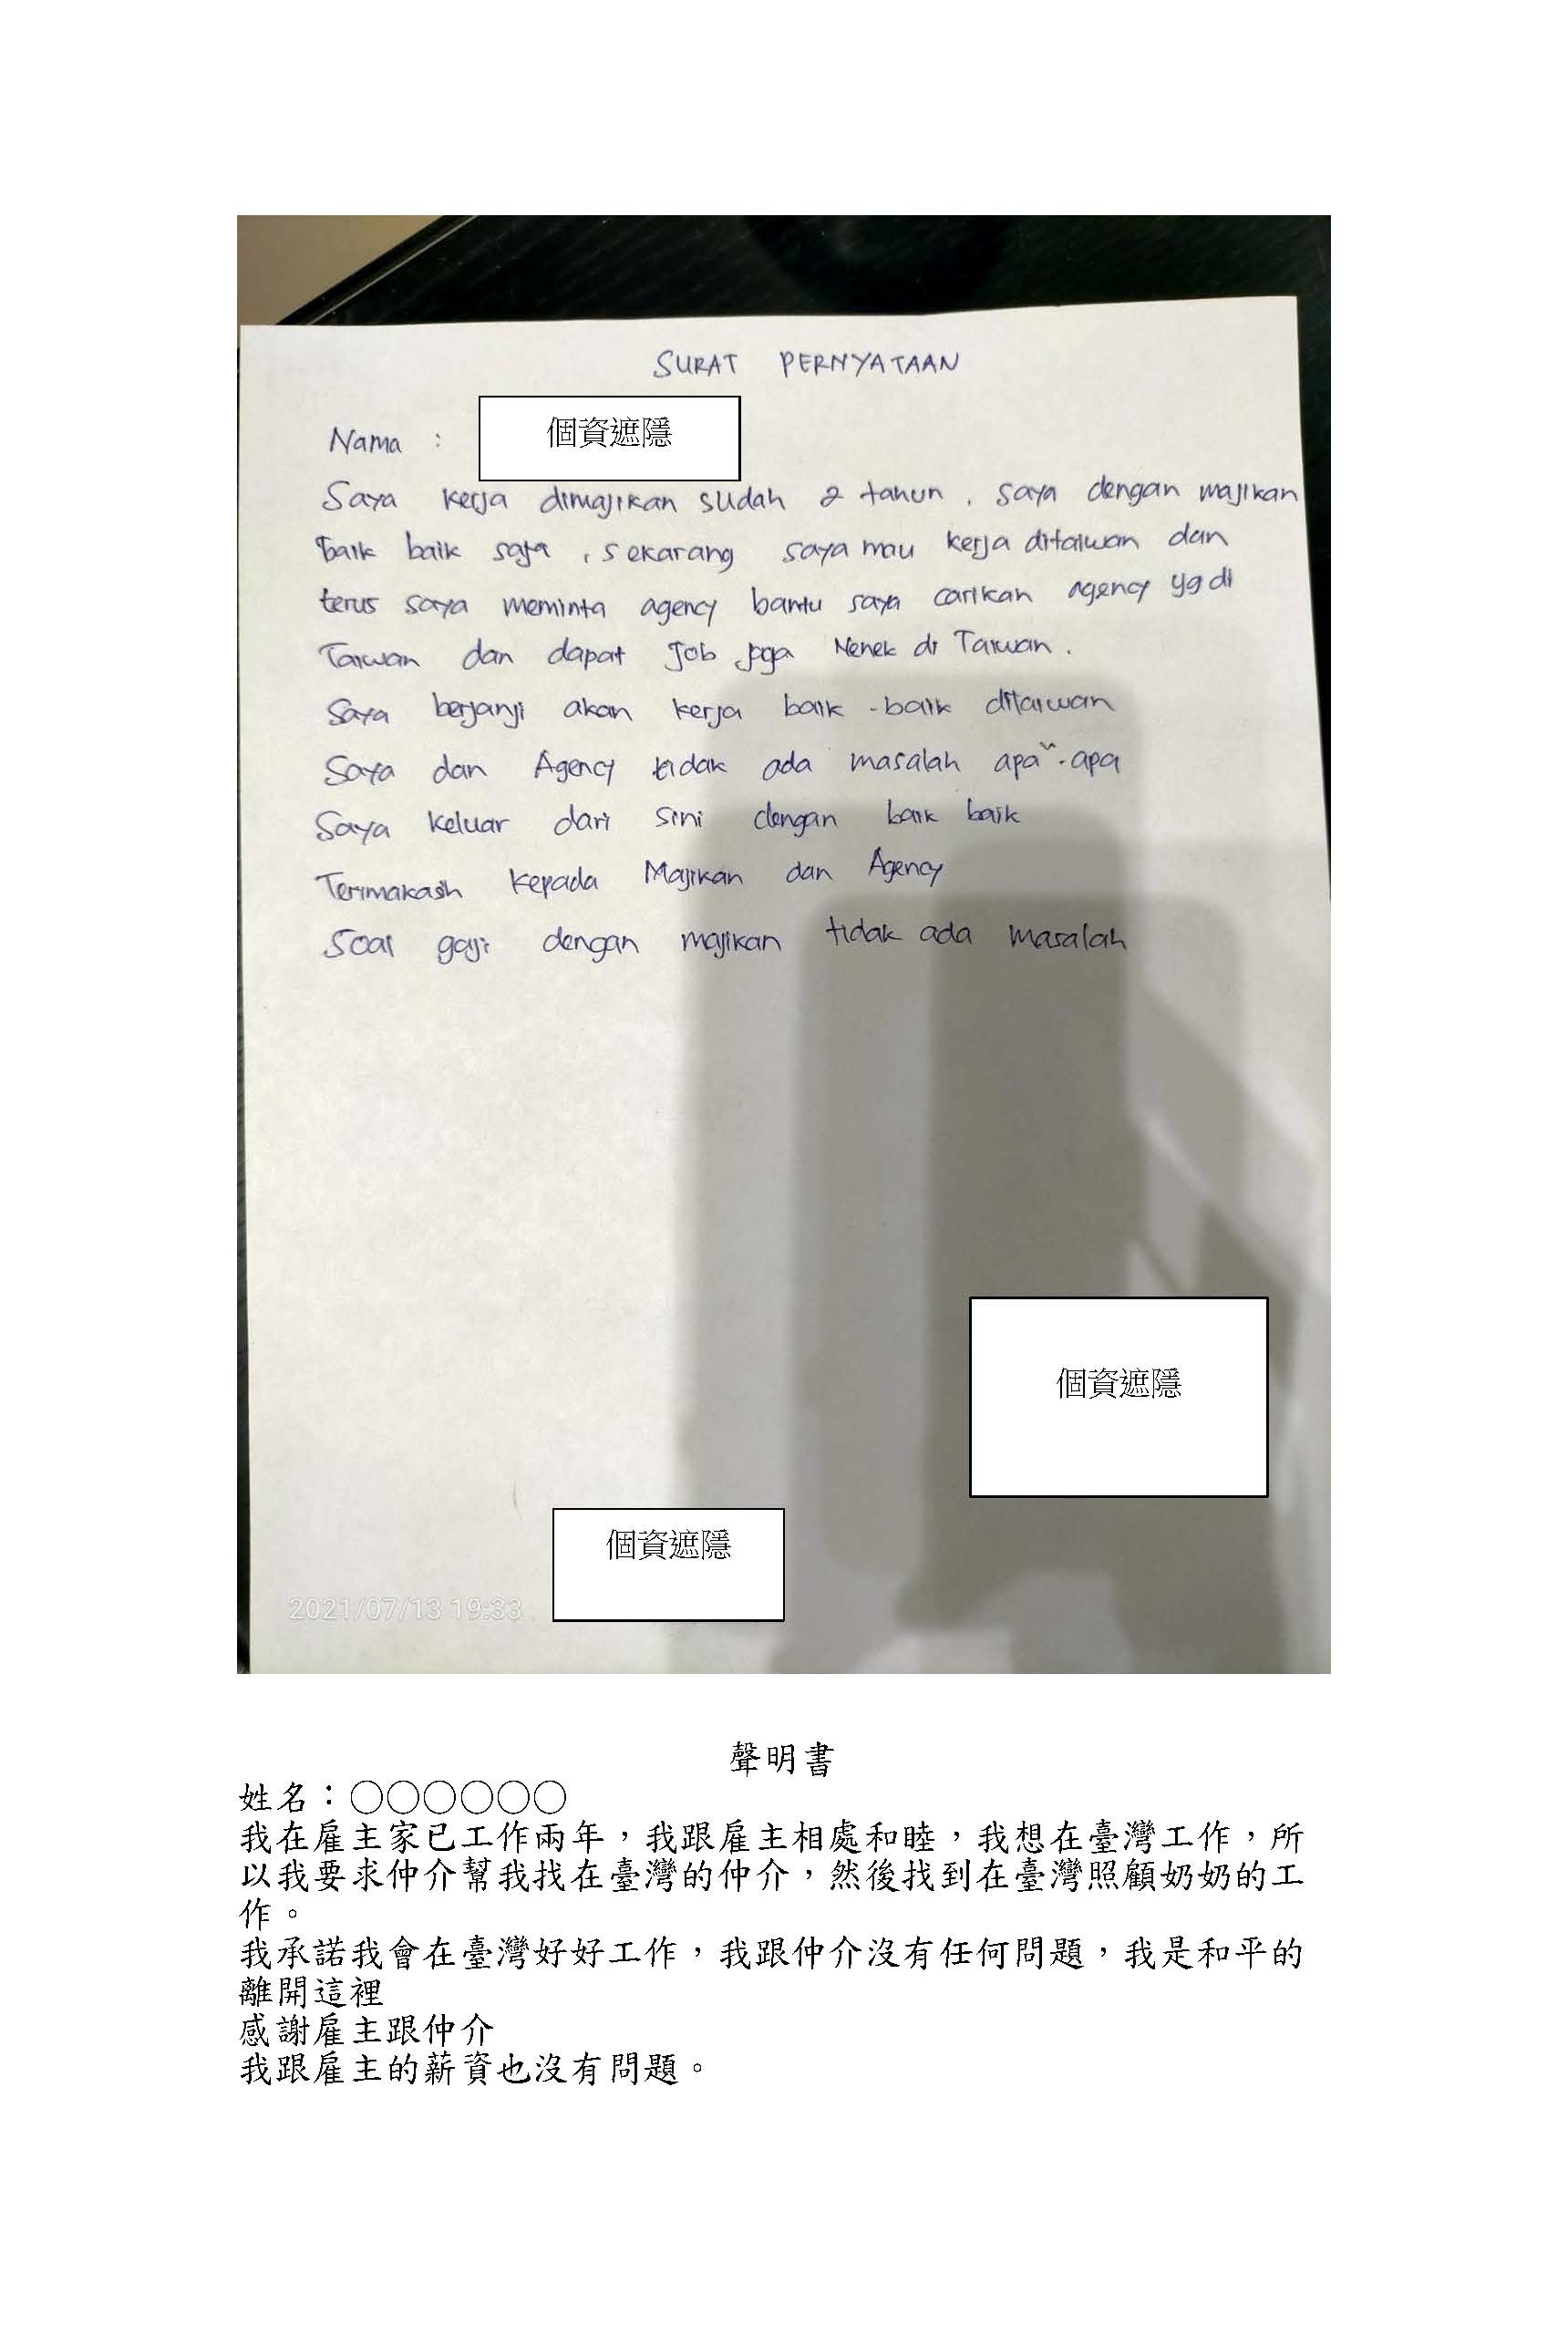 SURAT PERNYATAAN
Nama : 個資遮隱
Saya kerja dimajikan sudah 2 tahun, saya dengan majikan
baik baik saja, sekarang saya mau kerja ditaiwan dan
terus saya meminta agency bantu saya carikan agency yg di
Taiwan dan dapat Job jaga Nenek di Taiwan.
Saya berjanji akan kerja baik-baik ditaiwan
Saya dan Agency tidak ada masalah apa-apa
Saya keluar dari sini dengan baik baik
Terimakasih kepada Majikan dan Agency
Soal gaji dengan majikan tidak ada masalah
個資遮隱
個資遮隱
2021/07/13 19:33
聲明書
姓名：○○○○○○
我在雇主家已工作兩年，我跟雇主相處和睦，我想在臺灣工作，所
以我要求仲介幫我找在臺灣的仲介，然後找到在臺灣照顧奶奶的工
作。
我承諾我會在臺灣好好工作，我跟仲介沒有任何問題，我是和平的
離開這裡
感謝雇主跟仲介
我跟雇主的薪資也沒有問題。